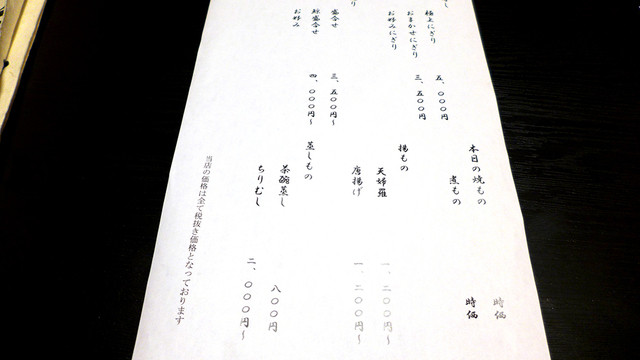 し
極上にぎり 五、〇〇〇円
おまかせにぎり 三、五〇〇円
お好みにぎり
り
盛合せ 三、五〇〇円～
盛合せ 四、〇〇〇円～
お好み
本日の焼もの 時価
煮もの 時価
揚もの
天婦羅 一、二〇〇円～
唐揚げ 一、二〇〇円～
蒸しもの
茶碗蒸し 八〇〇円
ちりむし 二、〇〇〇円～
当店の価格は全て税抜き価格となっております